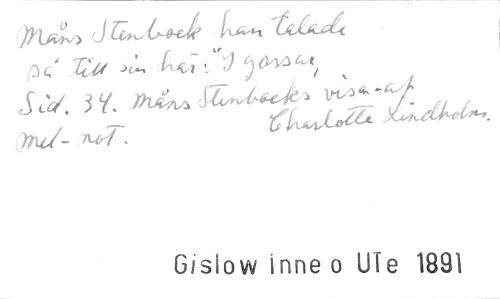 Måns Stenbock han talade
så till sin här: "I gossar,
Sid. 34. Måns Stenbocks visa - af
Charlotte Lindholm.
mel - not.
Gislow inne o UTe 1891